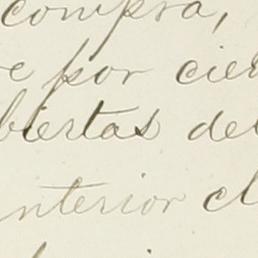 compra,
e por cie
biertas del
nterior el